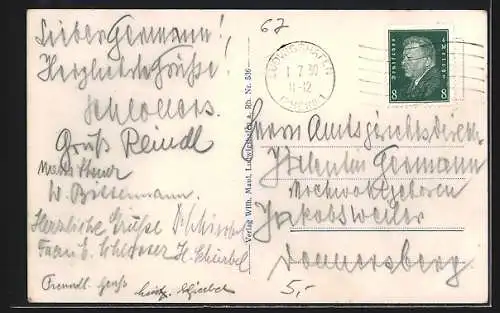 67
Lieber Germann!
Herzlichste Grüße!
Schlossers.
Gruß Reindl
W. Biesemann.
Herzliche Grüße
Frau E. Schlosser H. Schiebel
Freundl. Gruß
Verlag Wilh. Maut, Ludwigshafen a. Rh. Nr. 536
LUDWIGSHAFEN
1 7 30
11-12
(RHEIN)
Deutsches Reich
8 8
Herrn Amtsgerichtsdirekt.
Valentin Germann
Jakobsweiler
Donnersberg.
5,-